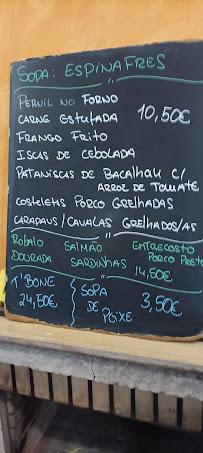 SOPA: ESPINAFRES
PERNIL NO FORNO
CARNE ESTUFADA 10,50€
FRANGO FRITO
ISCAS DE CEBOLADA
PATANISCAS DE BACALHAU C/
ARROZ DE TOMATE
COSTELETAS PORCO GRELHADAS
CARAPAUS/CAVALAS GRELHADOS/AS
ROBALO SALMÃO ENTRECOSTO
PORCO PRETO
DOURADA SARDINHAS 14,50€
T'BONE SOPA
24,50€ DE 3,50€
PEIXE